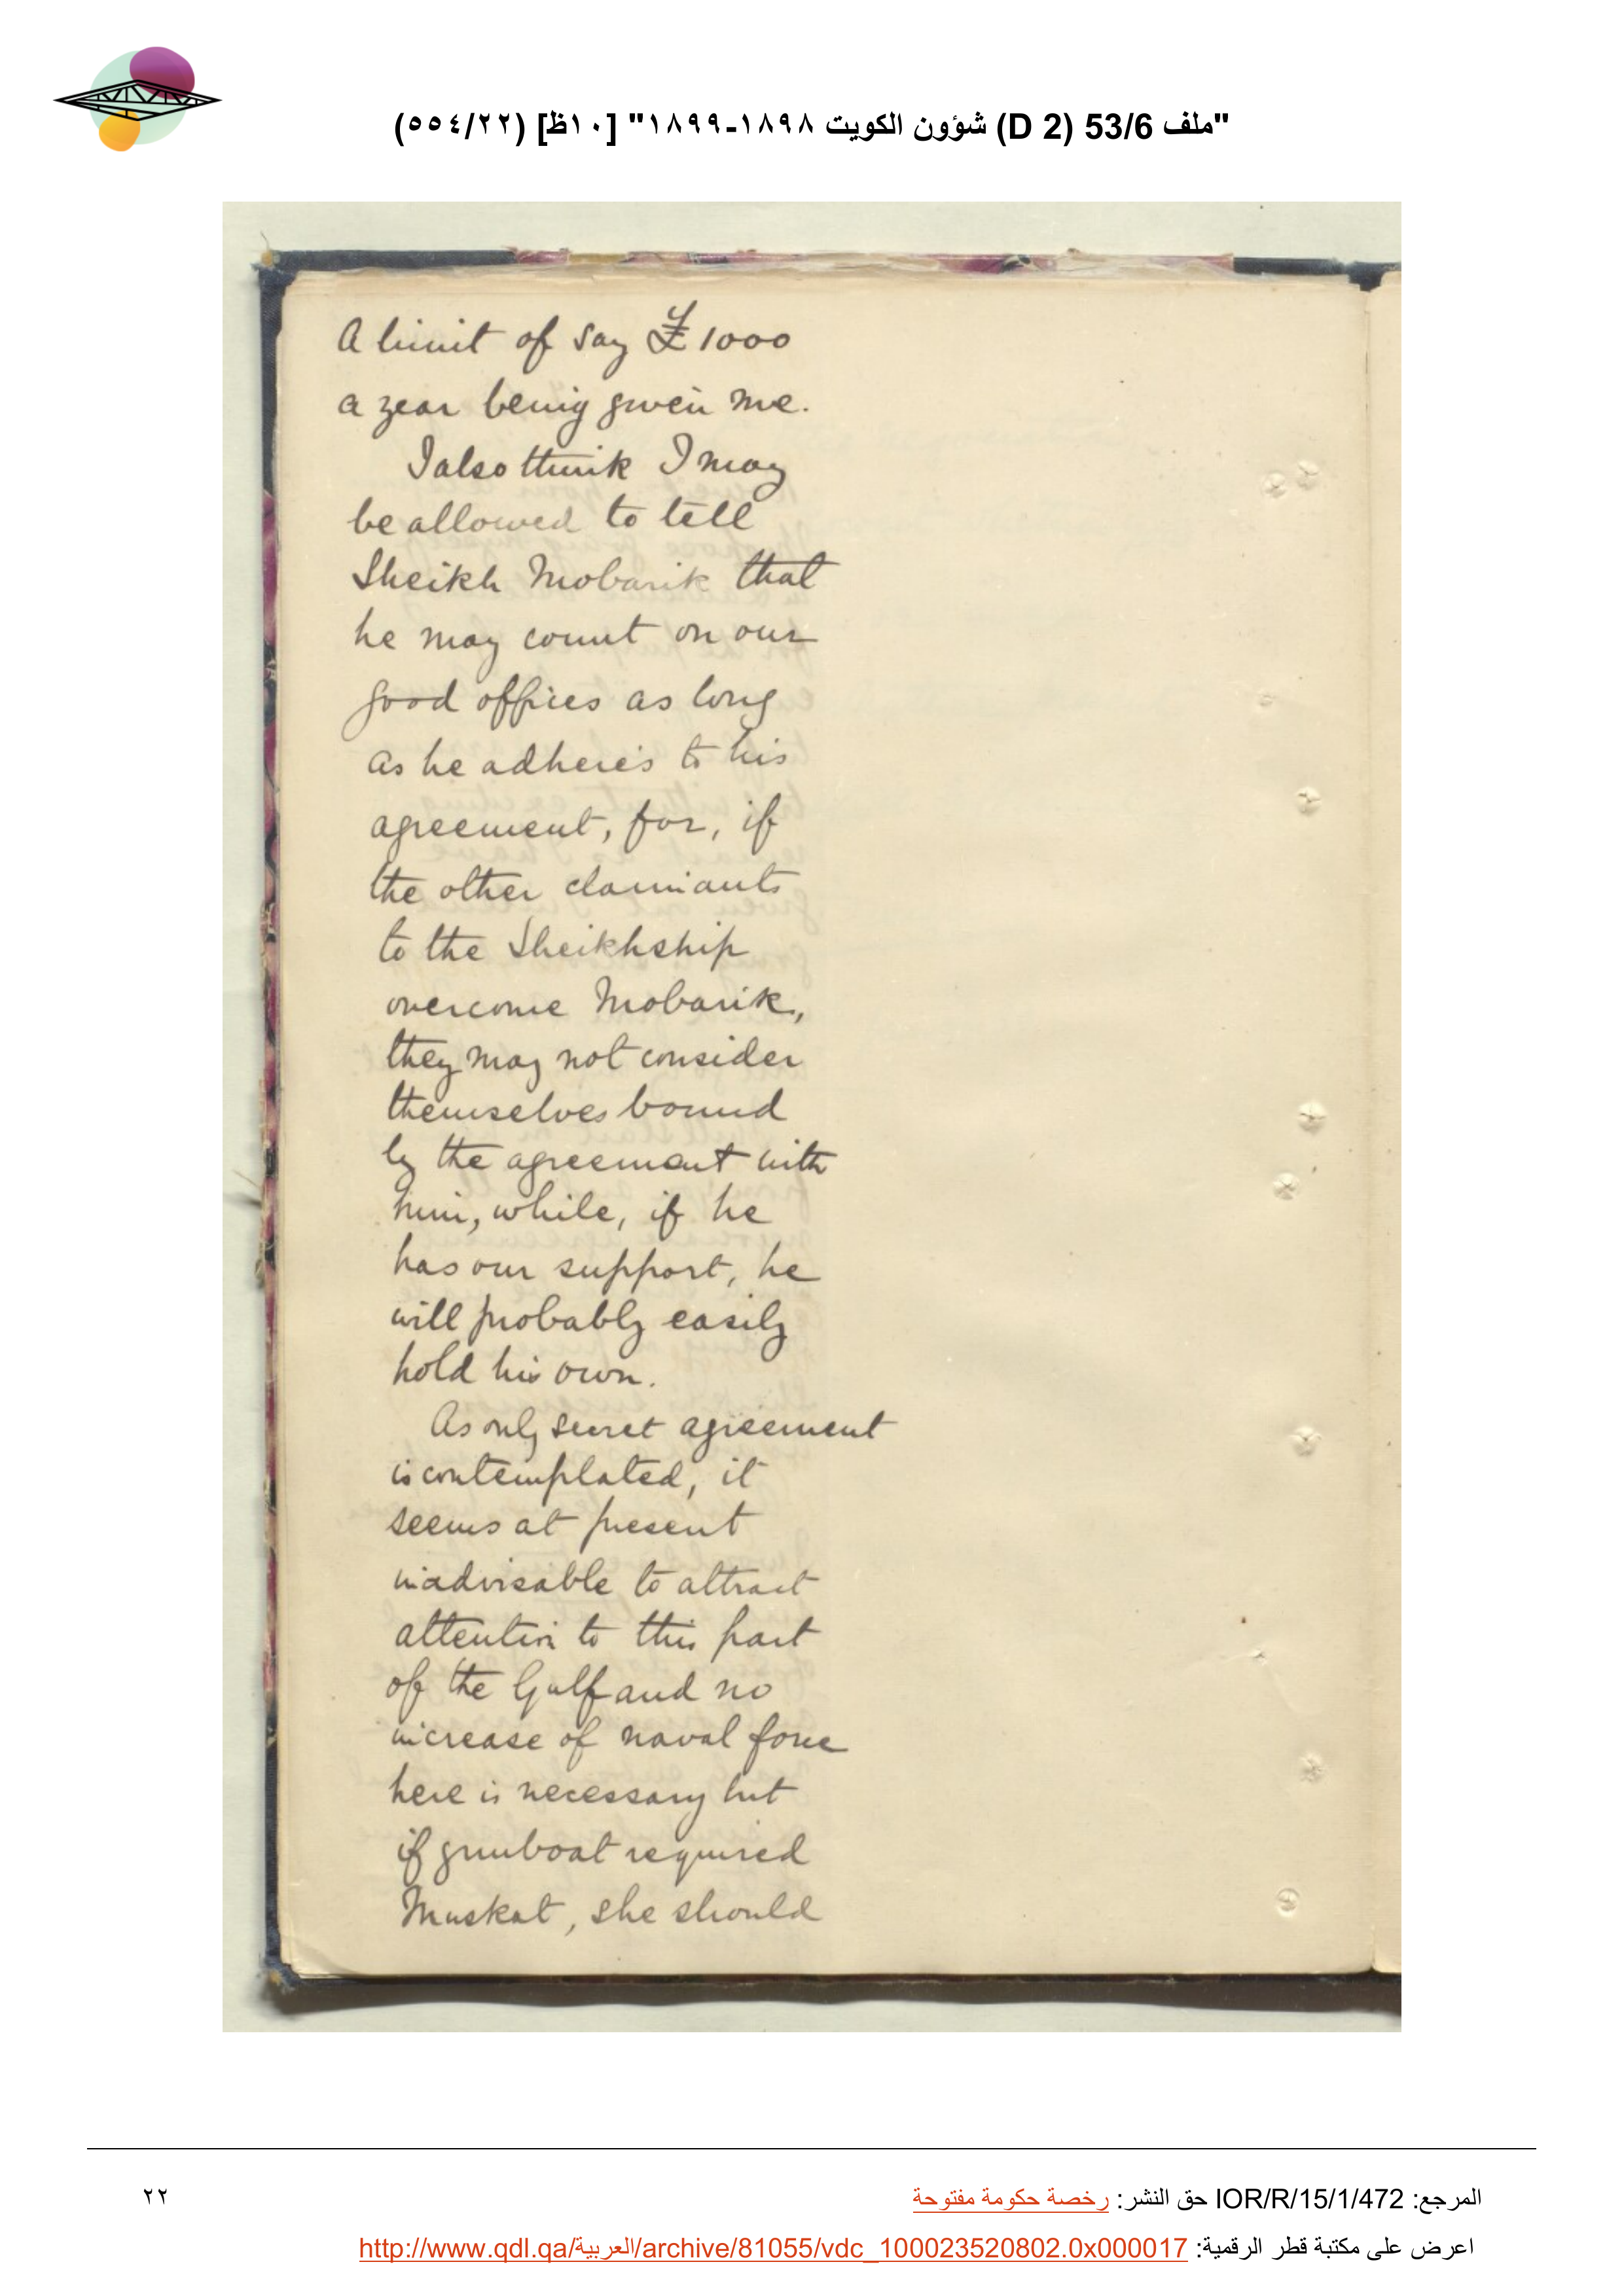 "ملف 53/6 (D 2) شؤون الكويت ١٨٩٨-١٨٩٩" [١٠ظ] (٥٥٤/٢٢)
A limit of say £1000
a year being given me.
I also think I may
be allowed to tell
Sheikh Mobarik that
he may count on our
good offices as long
as he adheres to his
agreement, for, if
the other claimants
to the Sheikhship
overcome Mobarik,
they may not consider
themselves bound
by the agreement with
him, while, if he
has our support, he
will probably easily
hold his own.
As only secret agreement
is contemplated, it
seems at present
inadvisable to attract
attention to this part
of the Gulf and no
increase of naval force
here is necessary but
if gunboat required
Muskat, she should
المرجع: IOR/R/15/1/472 حق النشر: رخصة حكومة مفتوحة
٢٢
اعرض على مكتبة قطر الرقمية: http://www.qdl.qa/العربية/archive/81055/vdc_100023520802.0x000017